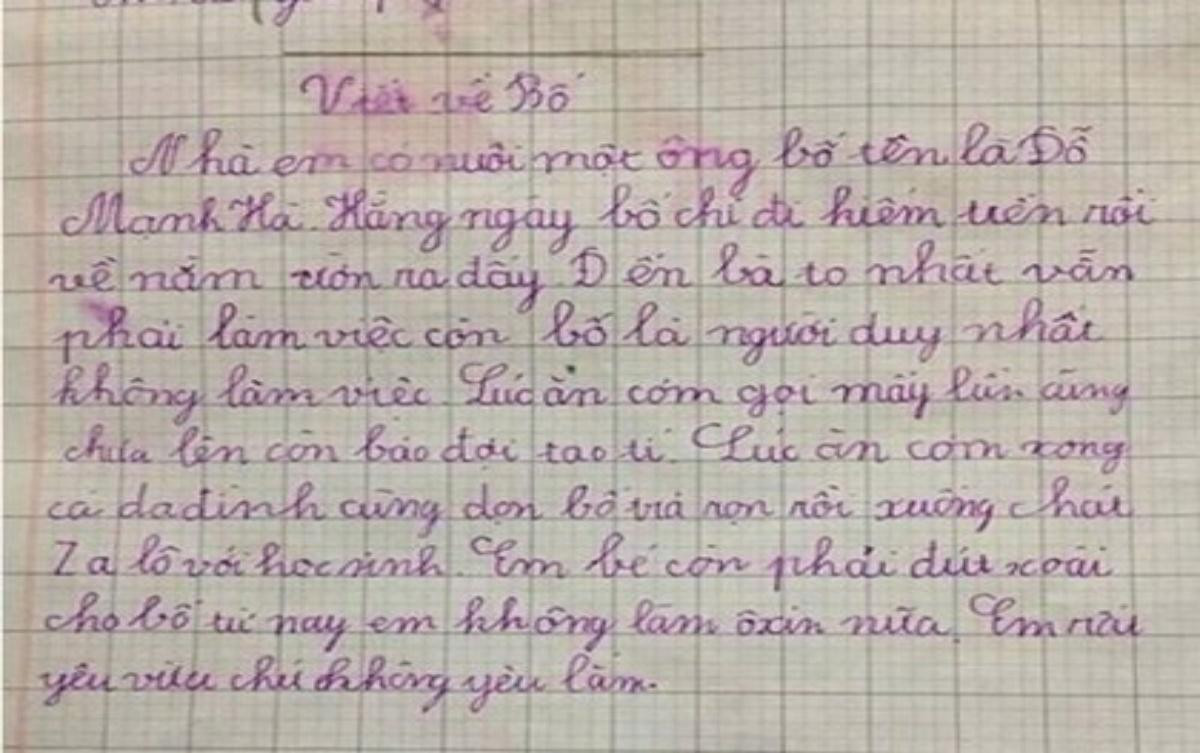 Viết về Bố
Nhà em có nuôi một ông bố tên là Đỗ
Mạnh Hà. Hằng ngày bố chỉ đi kiếm tiền rồi
về nằm ườn ra đấy Đến bà to nhất vẫn
phải làm việc còn bố là người duy nhất
không làm việc Lúc ăn cơm gọi mấy lần cũng
chưa lên còn bảo đợi tao tí. Lúc ăn cơm xong
cả da đình cùng dọn bố trả rọn rồi xuống chát
Za lô với học sinh. Em bé còn phải đút xoài
cho bố từ nay em không làm ôxin nữa. Em rất
yêu vừa chứ không yêu lắm.